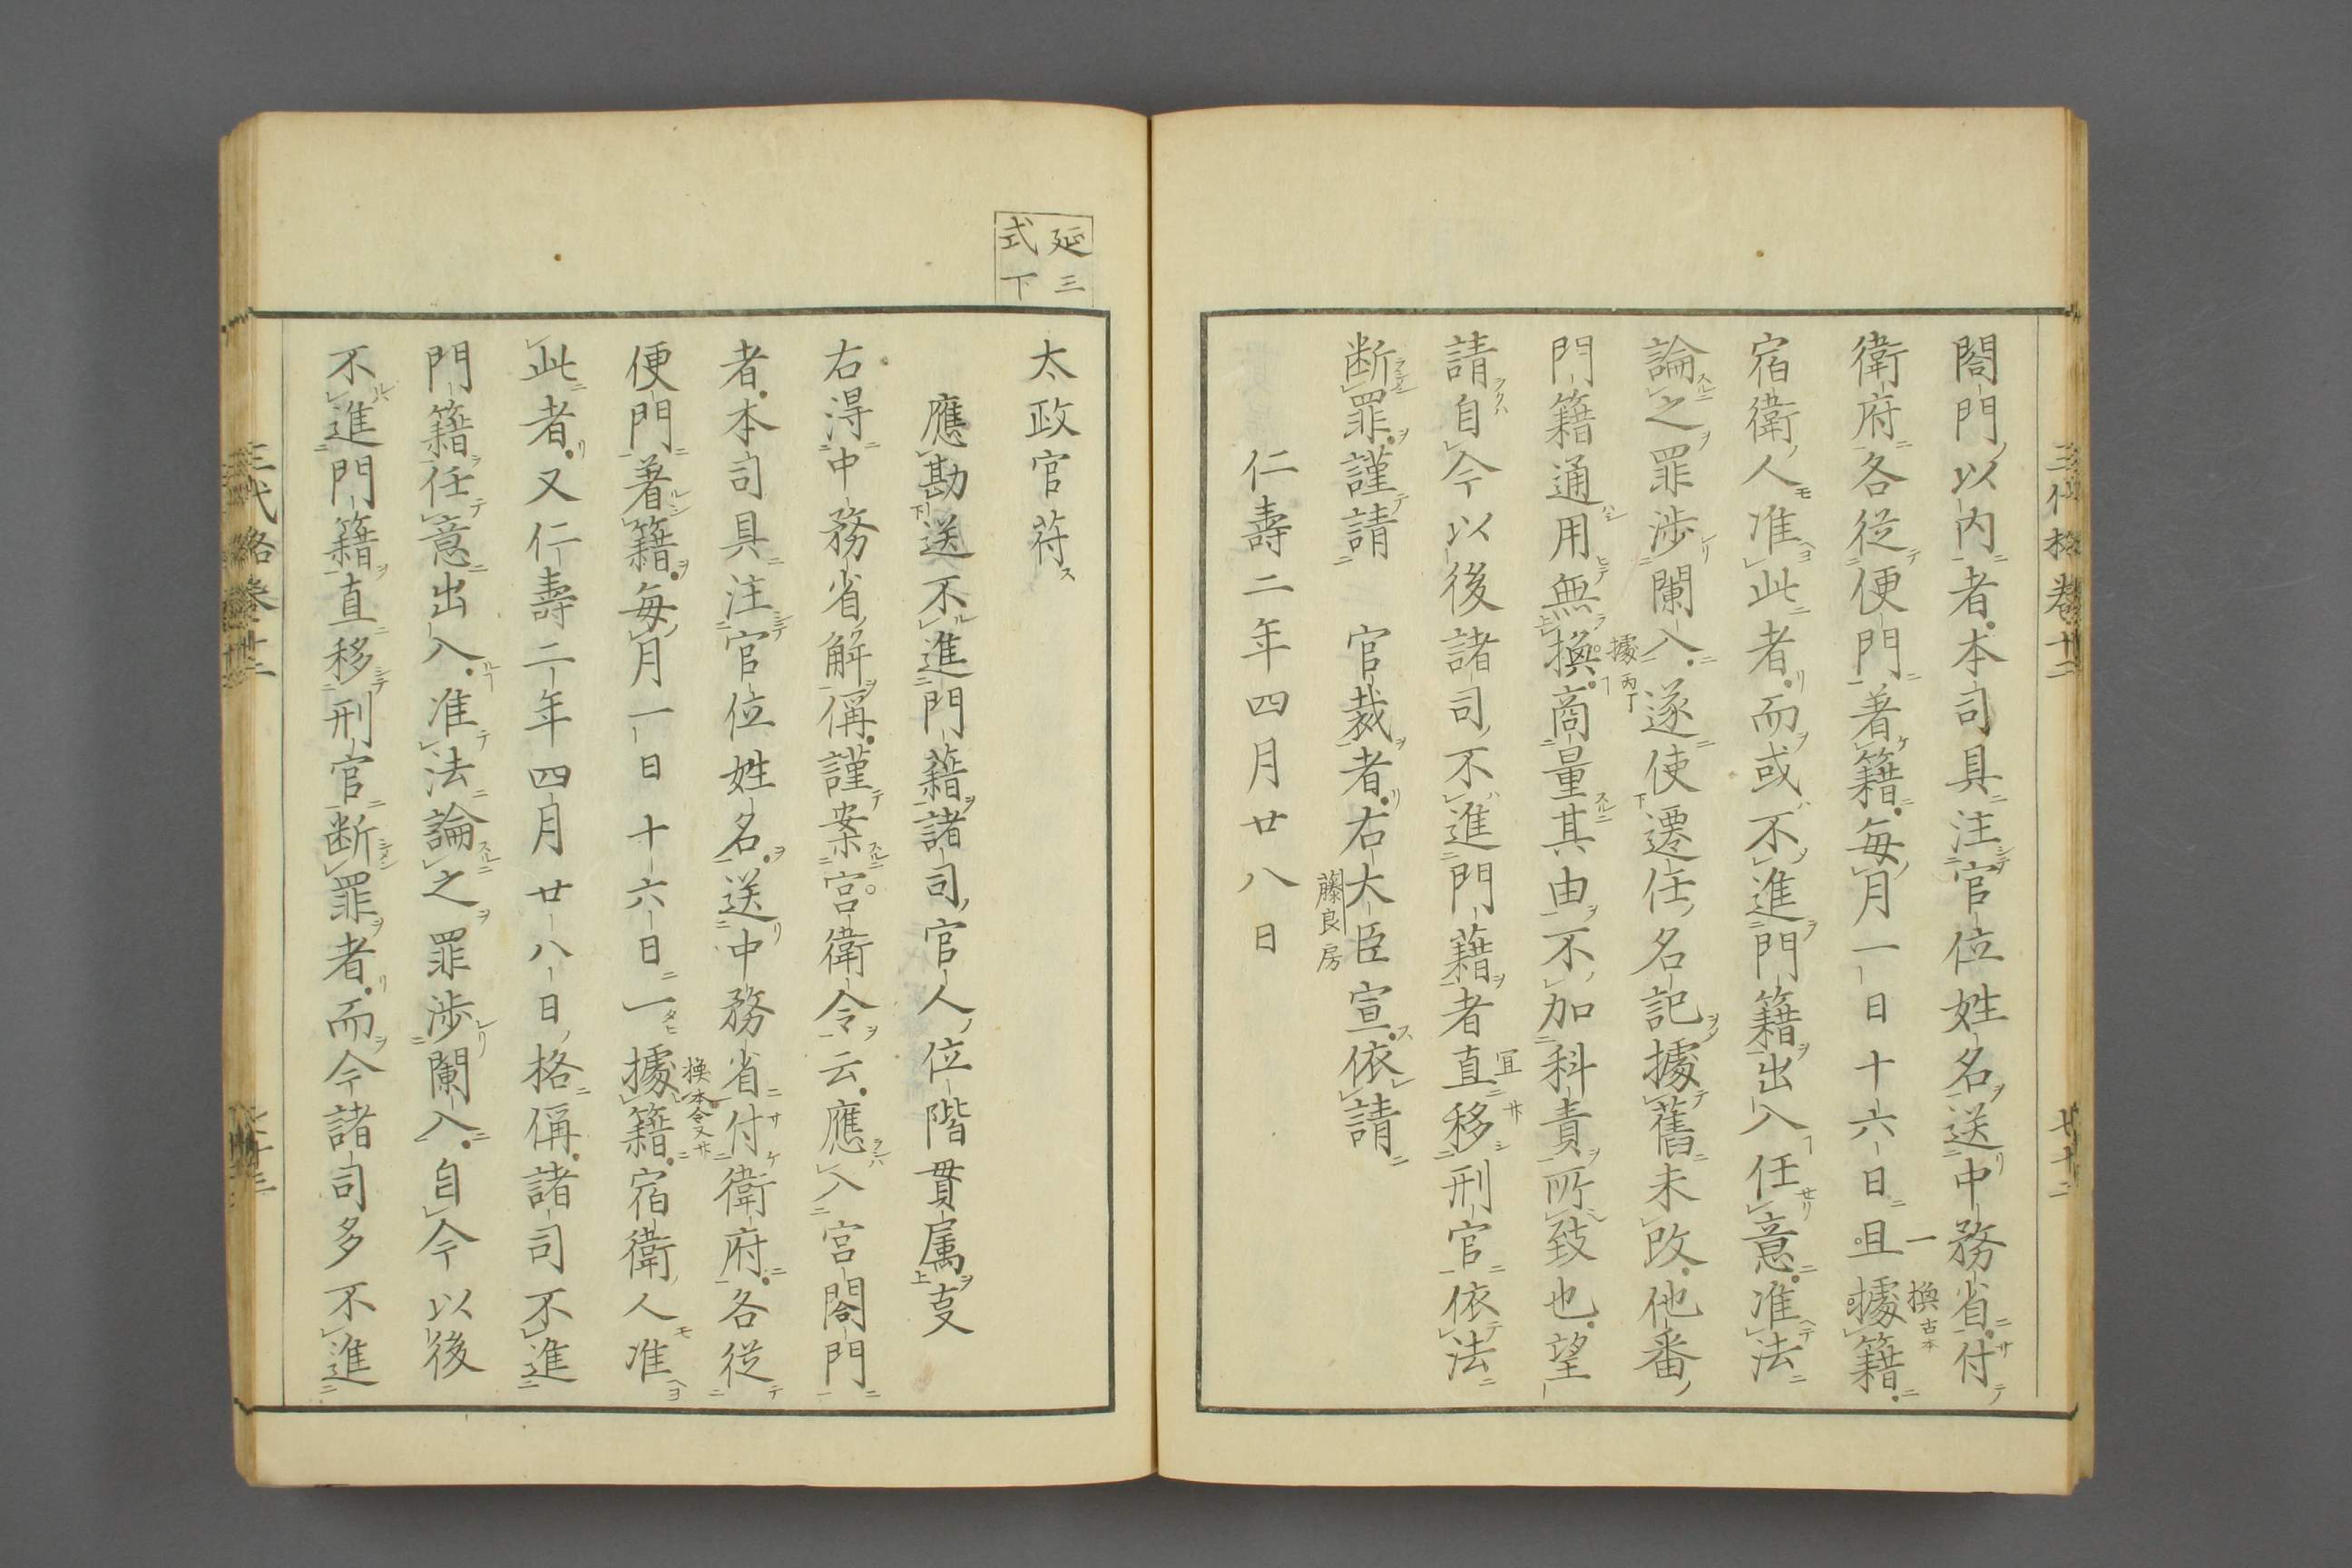 閤門以内者本司具注官位姓名送中務省付
衛府各従便門著籍毎月一日十六日且據籍
一
換古本
宿衛人准此者而或不進門籍出入任意准法
論之罪渉闌入遂使遷任名記據舊未改他番
據丙丁
門籍通用無換商量其由不加科責所致也望
請自今以後諸司不進門籍者直移刑官依法
断罪謹請　官裁者右大臣宣依請
藤良房
仁壽二年四月廿八日
延三
式下
太政官苻
應勘送不進門籍諸司官人位階貫属支
右得中務省解偁謹案宮衛令云應入宮閤門
者本司具注官位姓名送中務省付衛府各従
便門著籍毎月一日十六日一據籍宿衛人准
換本令又
此者又仁壽二年四月廿八日格偁諸司不進
門籍任意出入准法論之罪渉闌入自今以後
不進門籍直移刑官断罪者而今諸司多不進